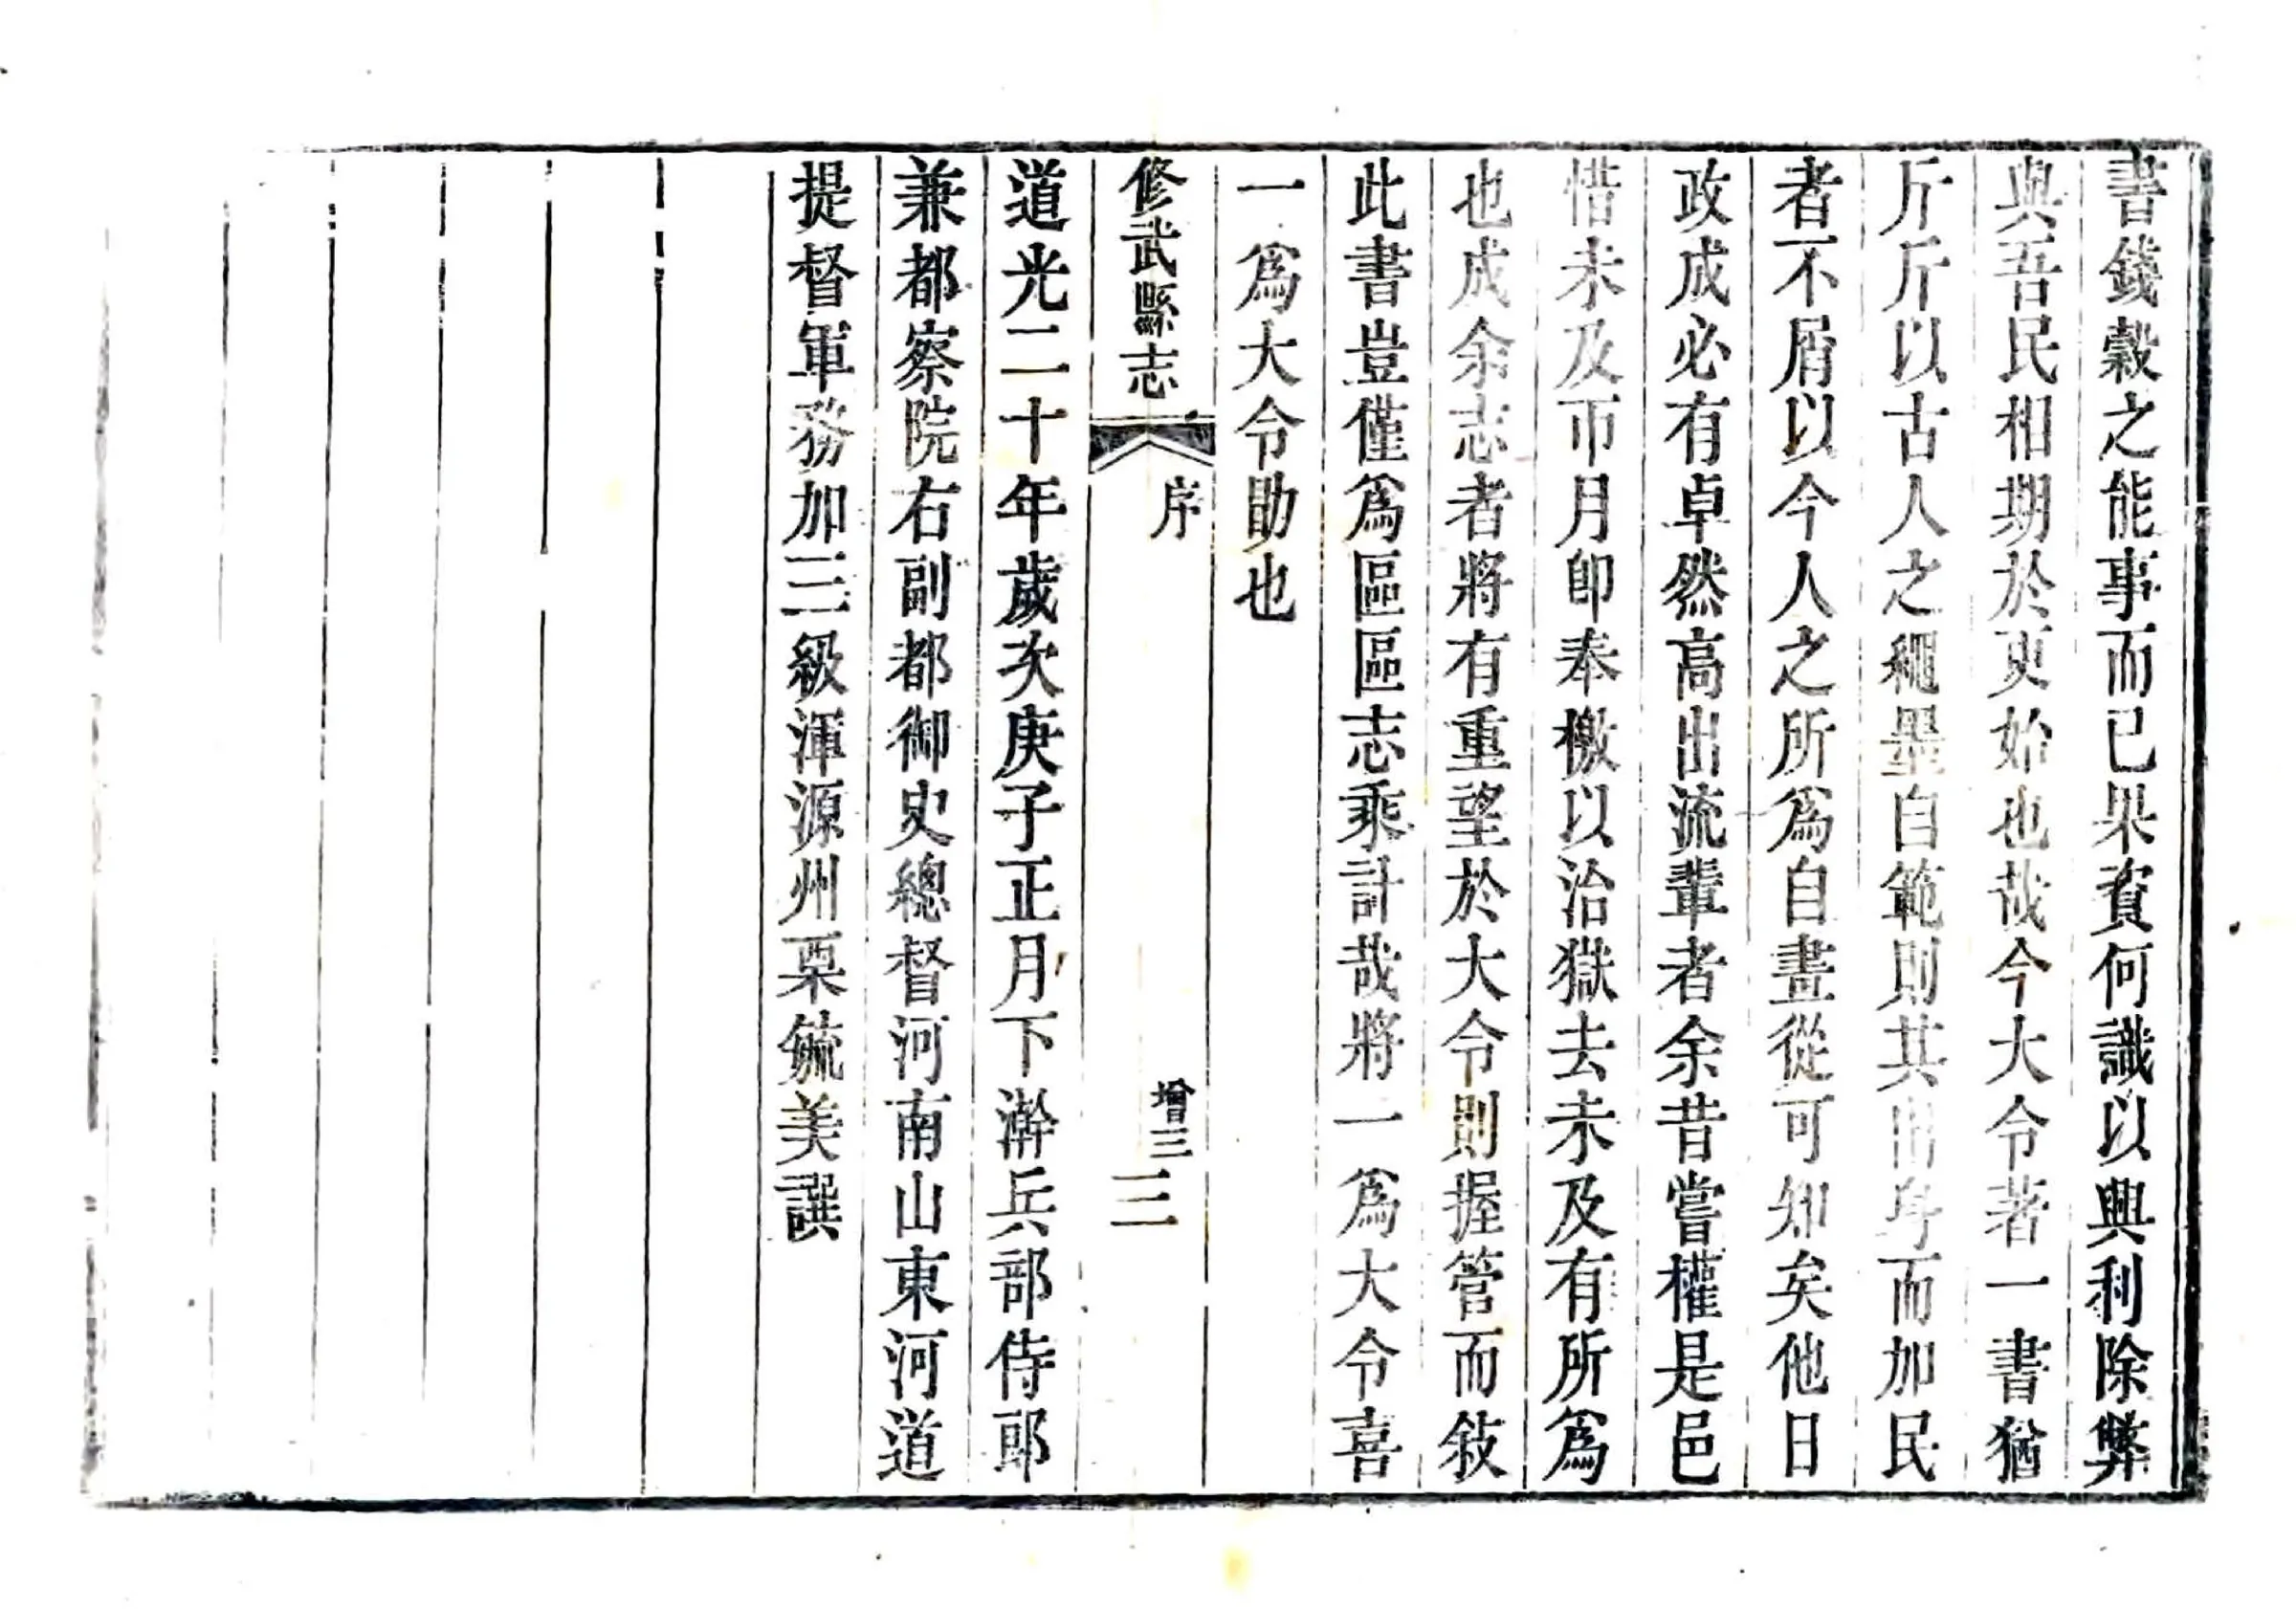 書錢穀之能事而已果資何識以興利除弊
與吾民相期於更始也哉今大令著一書猶
斤斤以古人之繩墨自範則其出身而加民
者不屑以今人之所爲自畫從可知矣他日
政成必有卓然高出流輩者余昔嘗權是邑
惜未及帀月卽奉檄以治獄去未及有所爲
也成余志者將有重望於大令則握管而敍
此書豈僅爲區區志乘計哉將一爲大令喜
一爲大令勖也
修武縣志
序
增三
三
道光二十年歲次庚子正月下澣兵部侍郎
兼都察院右副都御史總督河南山東河道
提督軍務加三級渾源州栗毓美譔